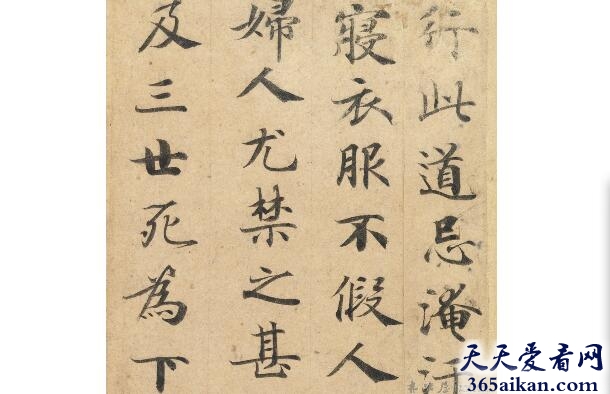 行此道忌淹污
寝衣服不假人
婦人尤禁之甚
及三世死為下
天天爱看网
365aikan.com